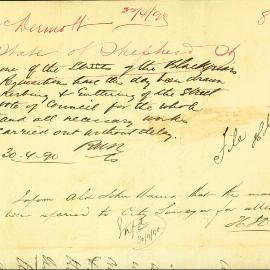 Dermott 30/4/90 8
State of Shepherd St
one of the Streets of the Blackfriars
Resumption have this day been drawn
Kerbing & Guttering of the Street
vote of Council for the whole
and all necessary works
carried out without delay.
30.4.90
File
Inform Ald John Harris, that the
been referred to City Surveyor for
30/4/90